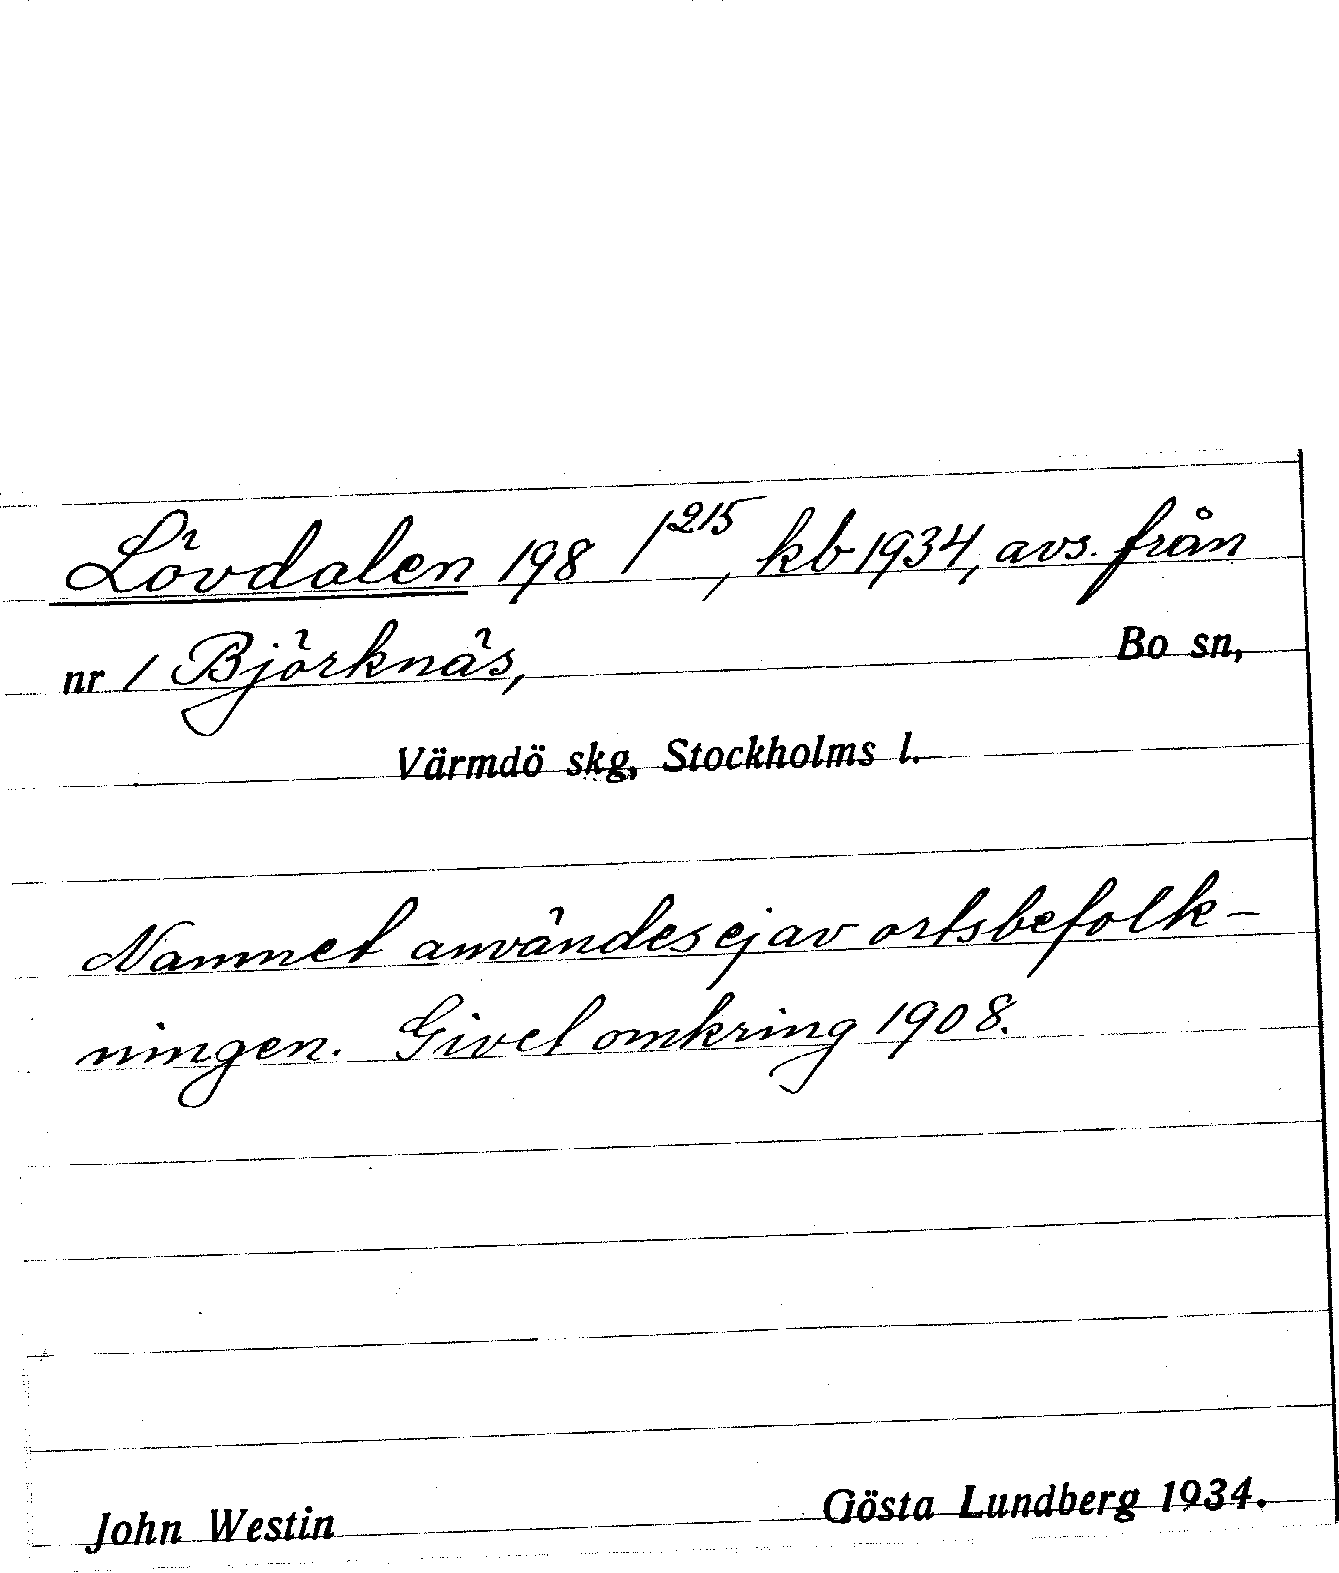 Lövdalen 198 1²¹⁵, kb 1934, avs. från
nr 1 Björknäs, Bo sn,
Värmdö skg, Stockholms l.
Namnet användes ej av ortsbefolk-
ningen. Givet omkring 1908.
John Westin Gösta Lundberg 1934.